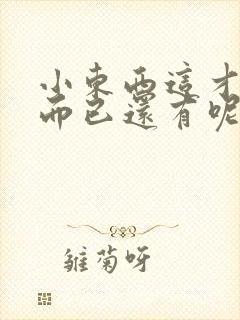 小東西這才
而已還有呢
雛菊呀